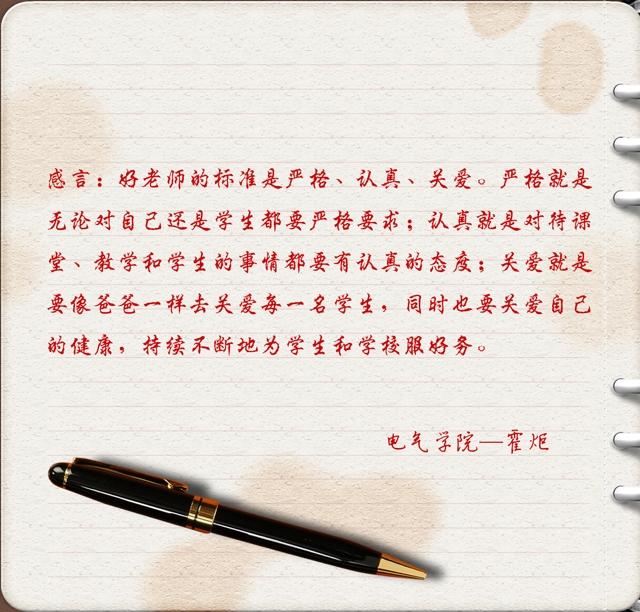 感言：好老师的标准是严格、认真、关爱。严格就是
无论对自己还是学生都要严格要求；认真就是对待课
堂、教学和学生的事情都要有认真的态度；关爱就是
要像爸爸一样去关爱每一名学生，同时也要关爱自己
的健康，持续不断地为学生和学校服好务。
电气学院—霍炬